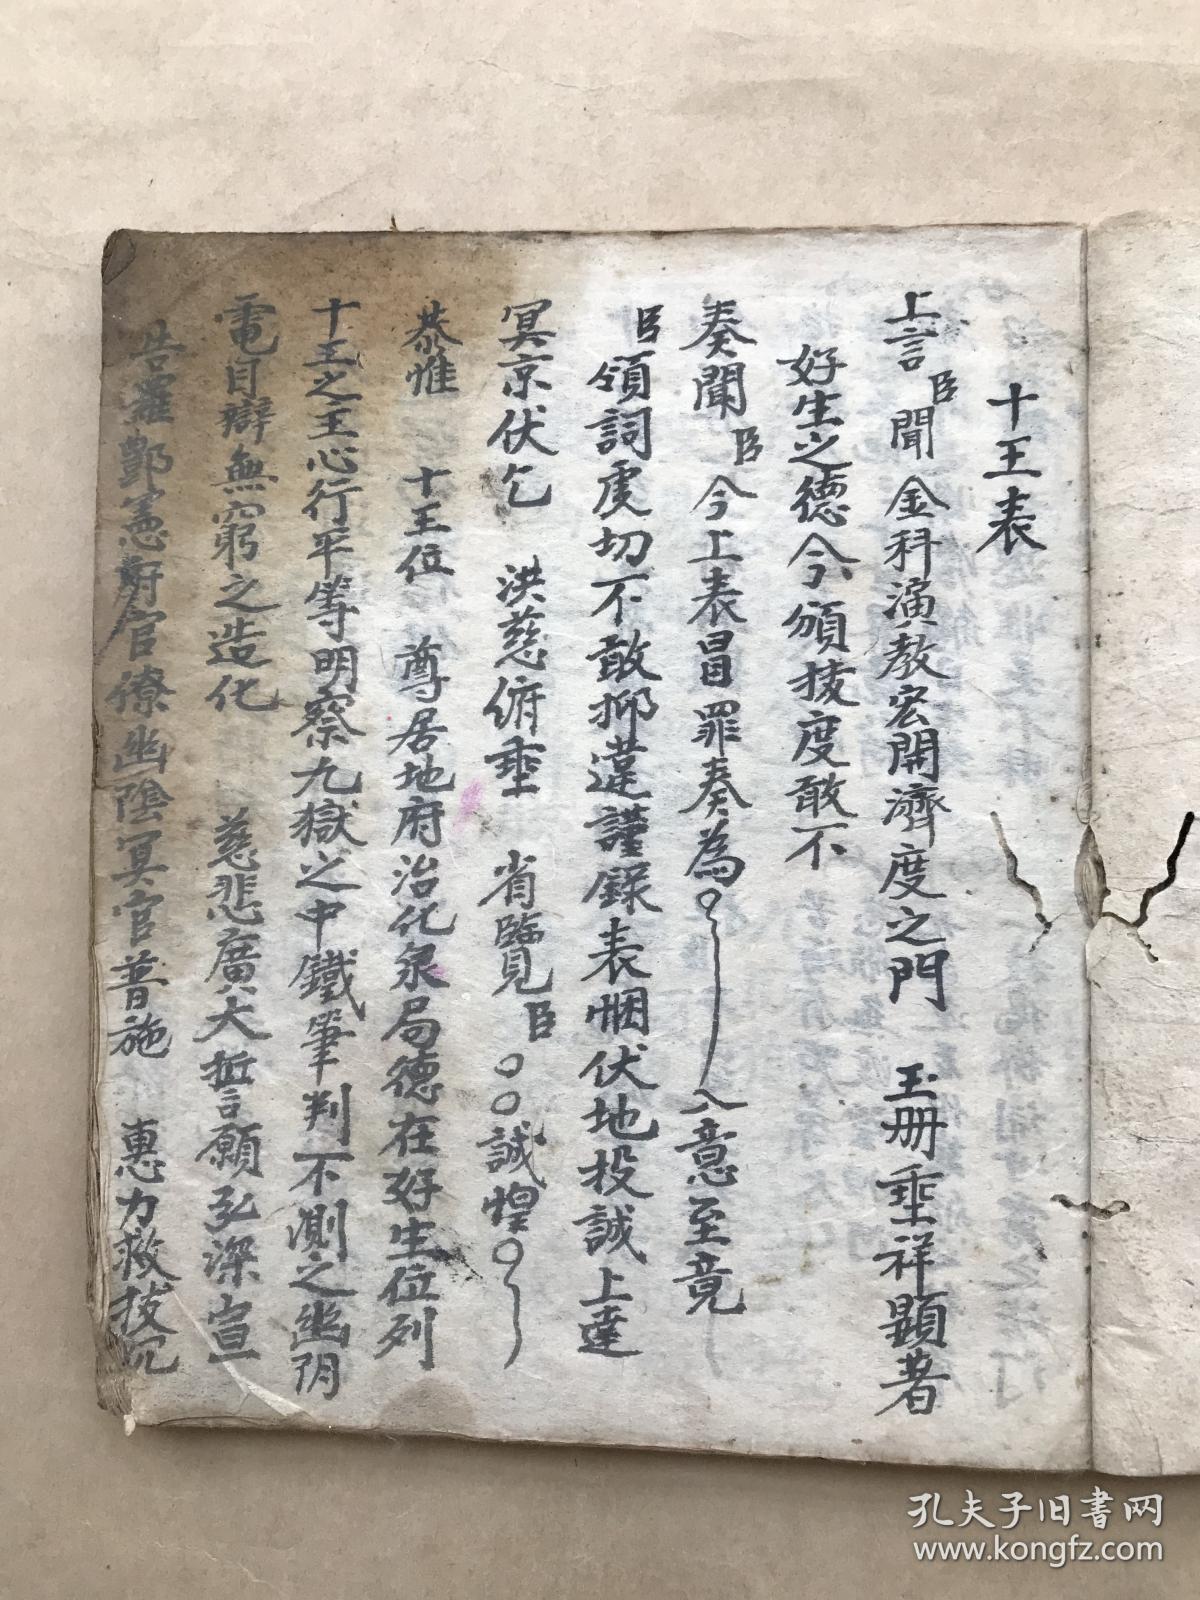 十王表
上言臣聞金科演教宏開濟度之門 玉册垂祥顯著
好生之德令頒拔度敢不
奏聞臣今上表冒罪奏為 入意至竟
臣領詞虔切不敢抑違謹錄表悃伏地投誠上達
冥京伏乞 洪慈俯垂 省覽臣○○誠惶○
恭惟 十王位 尊居地府治化泉局德在好生位列
十王之主心行平等明察九獄之中鐵筆判不測之幽阴
電目辯無窮之造化 慈悲廣大誓願弘深宣
告羅酆憲府官僚幽陰冥官普施 惠力救拔沉
孔夫子旧书网
www.kongfz.com